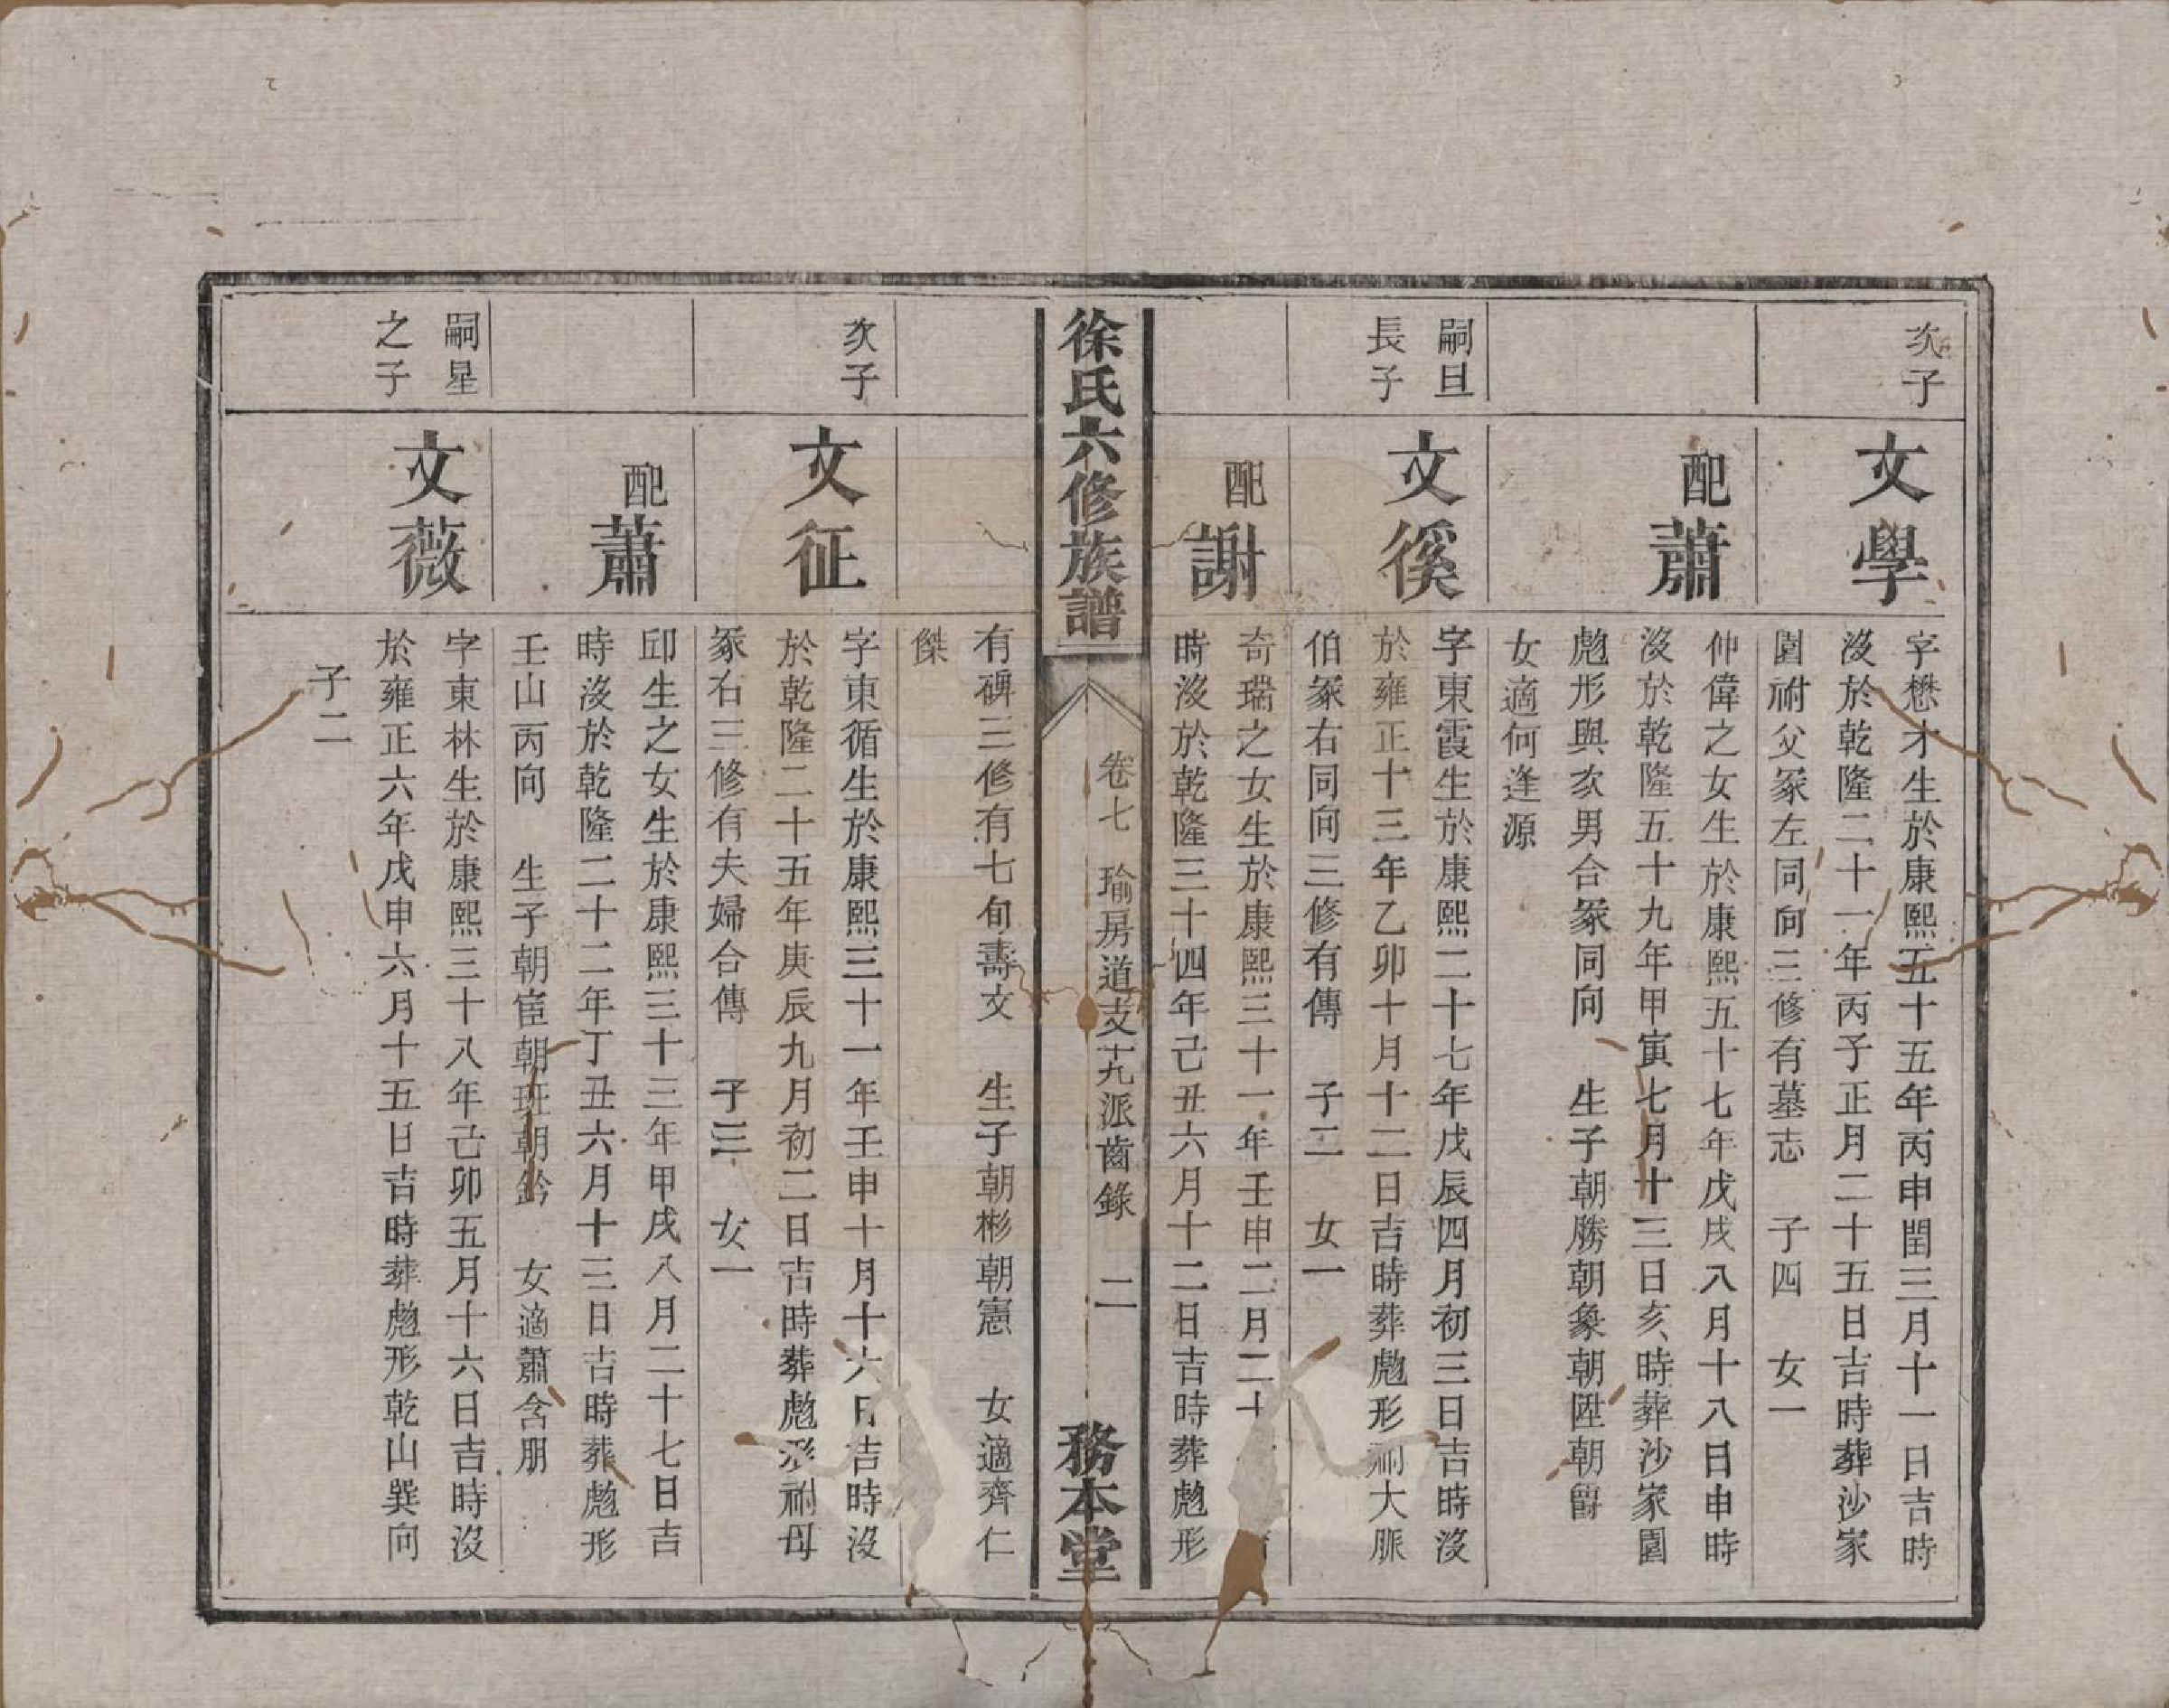 次子
文學
字懋才生於康熙五十五年丙申閏三月十一日吉時
沒於乾隆二十一年丙子正月二十五日吉時葬沙家
園祔父冢左同向三修有墓志 子四 女一
配蕭
仲偉之女生於康熙五十七年戊戌八月十八日申時
沒於乾隆五十九年甲寅七月十三日亥時葬沙家園
彪形與次男合冢同向 生子朝勝朝象朝陞朝爵
女適何逢源
嗣旦
長子
文徯
字東霞生於康熙二十七年戊辰四月初三日吉時沒
於雍正十三年乙卯十月十二日吉時葬彪形祔大脈
伯冢右同向三修有傳 子二 女一
配謝
奇瑞之女生於康熙三十一年壬申二月二十
時沒於乾隆三十四年己丑六月十二日吉時葬彪形
徐氏六修族譜
卷七 瑜房道支十九派齒錄 二
務本堂
有碑三修有七旬壽文 生子朝彬朝憲 女適齊仁
傑
次子
文征
字東循生於康熙三十一年壬申十月十六日吉時沒
於乾隆二十五年庚辰九月初二日吉時葬彪形祔母
冢右三修有夫婦合傳 子三 女一
配蕭
邱生之女生於康熙三十三年甲戌八月二十七日吉
時沒於乾隆二十二年丁丑六月十三日吉時葬彪形
壬山丙向 生子朝宦朝班朝鈐 女適蕭含朋
嗣星
之子
文薇
字東林生於康熙三十八年己卯五月十六日吉時沒
於雍正六年戊申六月十五日吉時葬彪形乾山巽向
子二